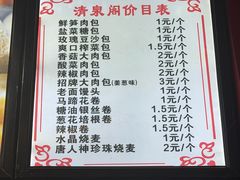 清泉阁价目表
鲜笋肉包 1元/个
盐菜糖包 1元/个
玫瑰豆沙包 1元/个
爽口榨菜包 1.5元/个
香菇大肉包 2元/个
酸菜肉包 2元/个
辣椒肉包 2元/个
招牌大肉包(姜葱味) 3元/个
老面馒头 1元/个
马蹄花卷 1元/个
糖油银丝卷 1.5元/个
葱花培根卷 1.5元/个
辣椒卷 1.5元/个
水晶烧麦 1元/个
唐人神珍珠烧麦 2元/个